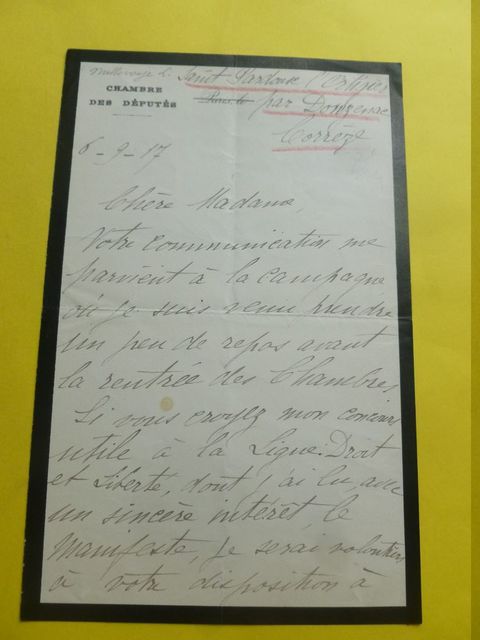 Millevoye L. Saint Pardoux l'Ortigier
CHAMBRE
DES DÉPUTÉS
Paris, le par Donzenac
Corrèze
6-9-17
Chère Madame,
Votre communication me
parvient à la campagne
où je suis venu prendre
un peu de repos avant
la rentrée des Chambres.
Si vous croyez mon concours
utile à la Ligue: Droit
et Liberté, dont j'ai lu, avec
un sincère intérêt, le
Manifeste, je serai volontiers
à votre disposition à